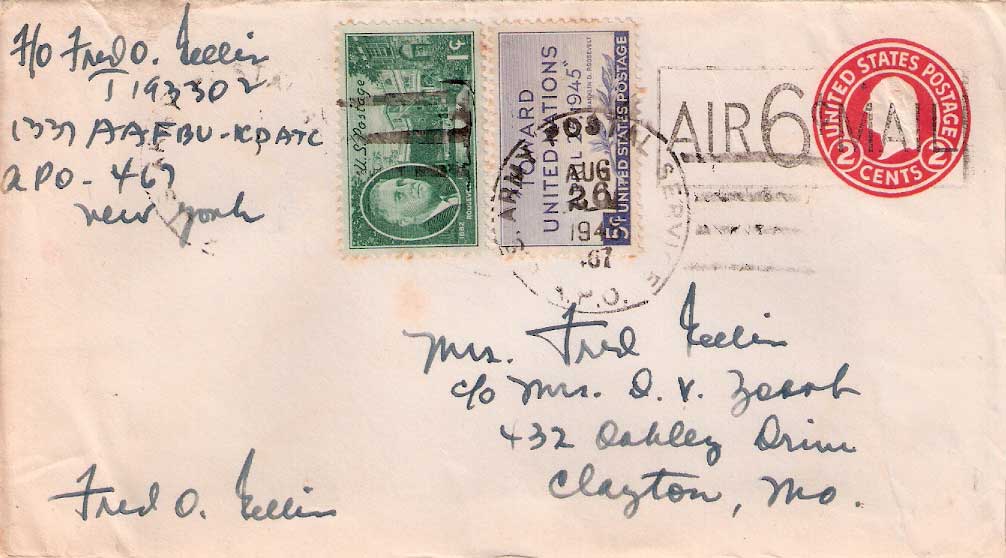 F/O Fred O.
T 193302
1337 AAFBU - KDATC
APO - 467
New York
1¢
U.S. Postage
1882 ROOSEVELT
TOWARD
UNITED NATIONS
APRIL 25, 1945"
FRANKLIN D. ROOSEVELT
5¢ UNITED STATES POSTAGE
ARMY POSTAL SERVICE
AUG
26
467
A.P.O.
AIR 6¢ MAIL
UNITED STATES POSTAGE
2 CENTS 2
Mrs. Fred
c/o Mrs. D. V.
432 Oakley Drive
Clayton, Mo.
Fred O.